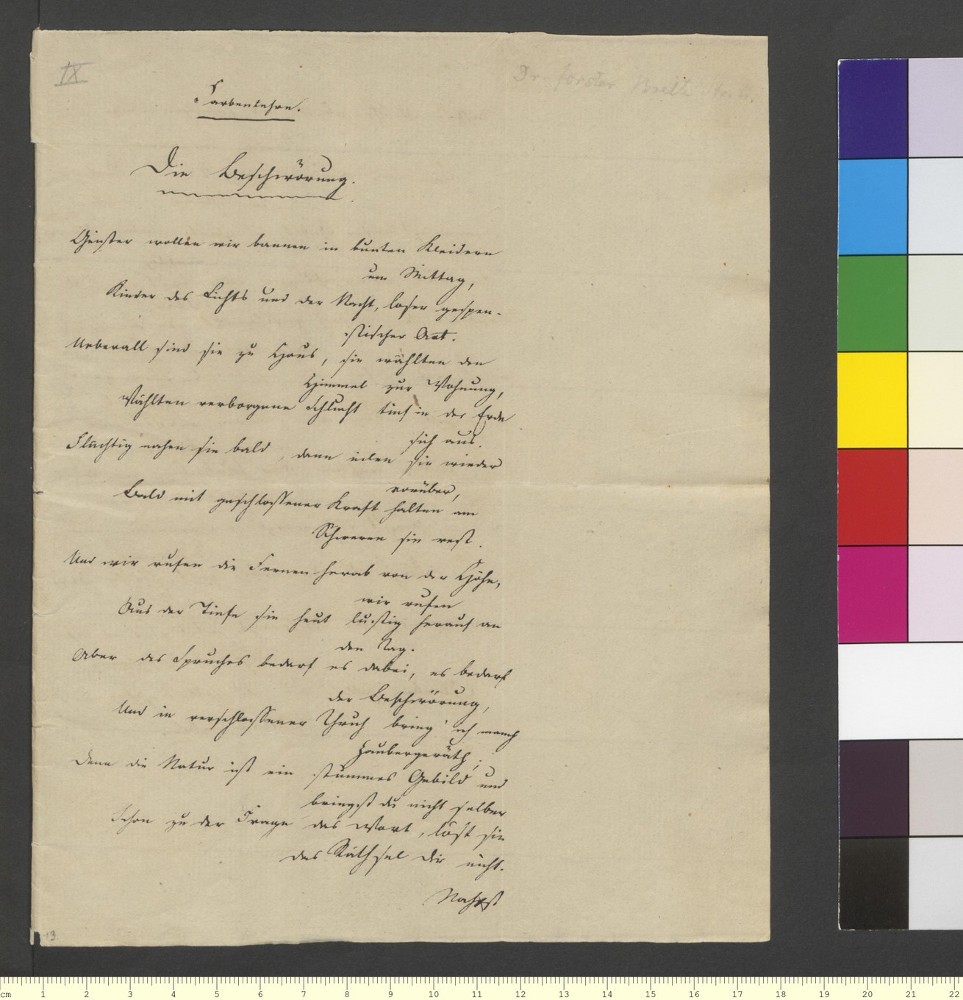 IX
Dr Forster
Farbenlehre.
Die Beschwörung.
Geister wollen wir bannen in bunten Kleidern
um Mittag,
Kinder des Lichts und der Nacht, loser gespen-
stischer Art.
Ueberall sind sie zu Haus, sie wählten den
Himmel zur Wohnung,
Wählten verborgene Schlucht tief in der Erde
sich aus.
Flüchtig nahen sie bald, dann eilen sie wieder
vorüber,
Bald mit geschlossener Kraft halten am
Schweren sie vest.
Und wir rufen die Fernen herab von der Höhe,
wir rufen
Aus der Tiefe sie heut lustig herauf an
den Tag.
Aber des Spruches bedarf es dabei, es bedarf
der Beschwörung,
Und in verschlossener Truh bring' ich manch
Zaubergeräth;
Denn die Natur ist ein stummes Gebild und
bringst du nicht selber
Schon zu der Frage das Wort, löst sie
das Räthsel dir nicht.
13
cm 1 2 3 4 5 6 7 8 9 10 11 12 13 14 15 16 17 18 19 20 21 22